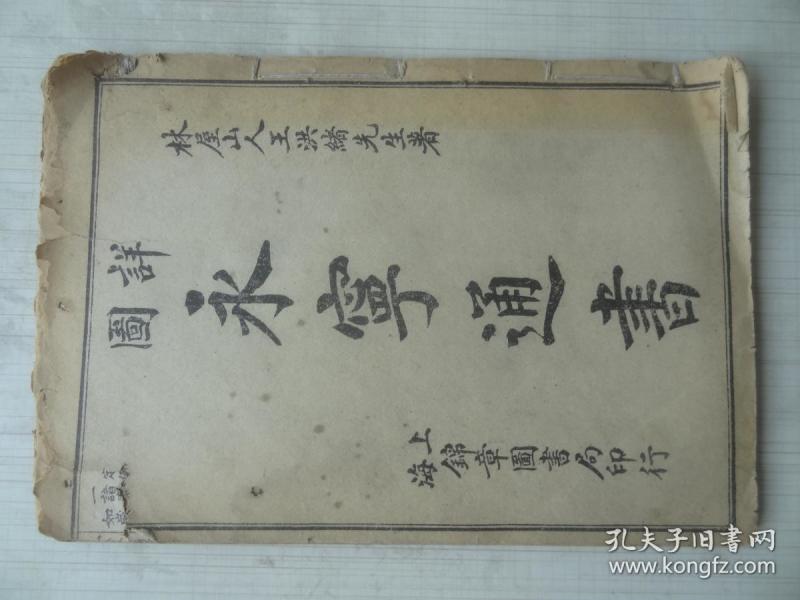 林屋山人王洪緒先生著
詳圖
永寧通書
上海錦章圖書局印行
孔夫子旧书网
www.kongfz.com